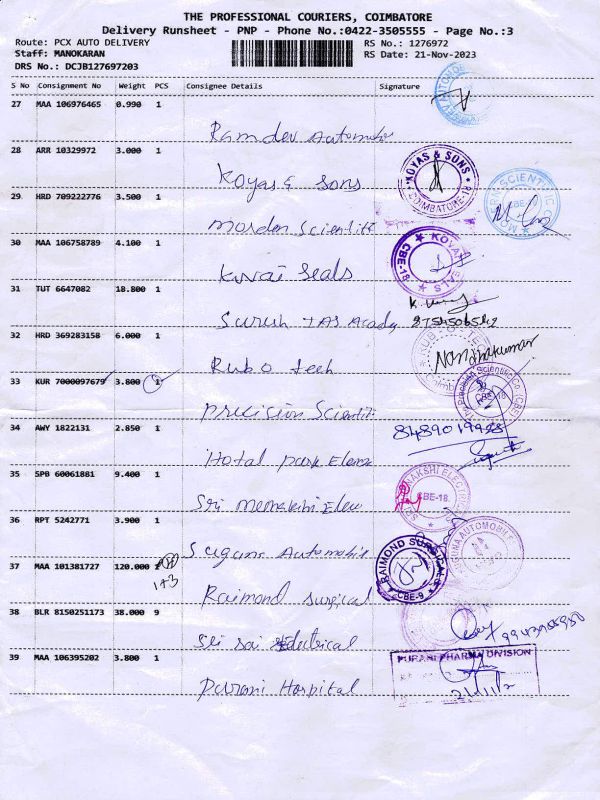 THE PROFESSIONAL COURIERS, COIMBATORE
Delivery Runsheet - PNP - Phone No.:0422-3505555 - Page No.:3
Route: PCX AUTO DELIVERY
RS No.: 1276972
Staff: MANOKARAN
RS Date: 21-Nov-2023
DRS No.: DCJB127697203
S No Consignment No Weight PCS Consignee Details Signature
27 MAA 106976465 0.990 1
Ramdev Automobi
28 ARR 10329972 3.000 1
Koyas & Sons
KOYAS & SONS
COIMBATORE-11
29 HRD 709222776 3.500 1
Morden Scientifi
SCIENTIFIC
CBE-18
30 MAA 106758789 4.100 1
Kovai Seals
KOVAI SEALS
CBE-18
31 TUT 6647082 18.800 1
Suresh IAS Acady
32 HRD 369283158 6.000 1
Nandhakumar
Rubo tech
33 KUR 7000097679 3.800 1
Precision Scientifi
The Precision Scientific Co (CBE)
CBE-18
34 AWY 1822131 2.850 1
8489019958
Hotal park Elanza
35 SPB 60061881 9.400 1
Sri Meenakshi Elec
CBE-18.
36 RPT 5242771 3.900 1
Suguna Automobile
SUGUNA AUTOMOBILE
37 MAA 101381727 120.000
1+3
Raimond Surgical
RAIMOND SURGICALS
CBE-9
38 BLR 8150251173 38.000 9
Sri Sai Electrical
39 MAA 106395202 3.800 1
PURANI PHARMA DIVISION
Purani Hospital
21/11/2